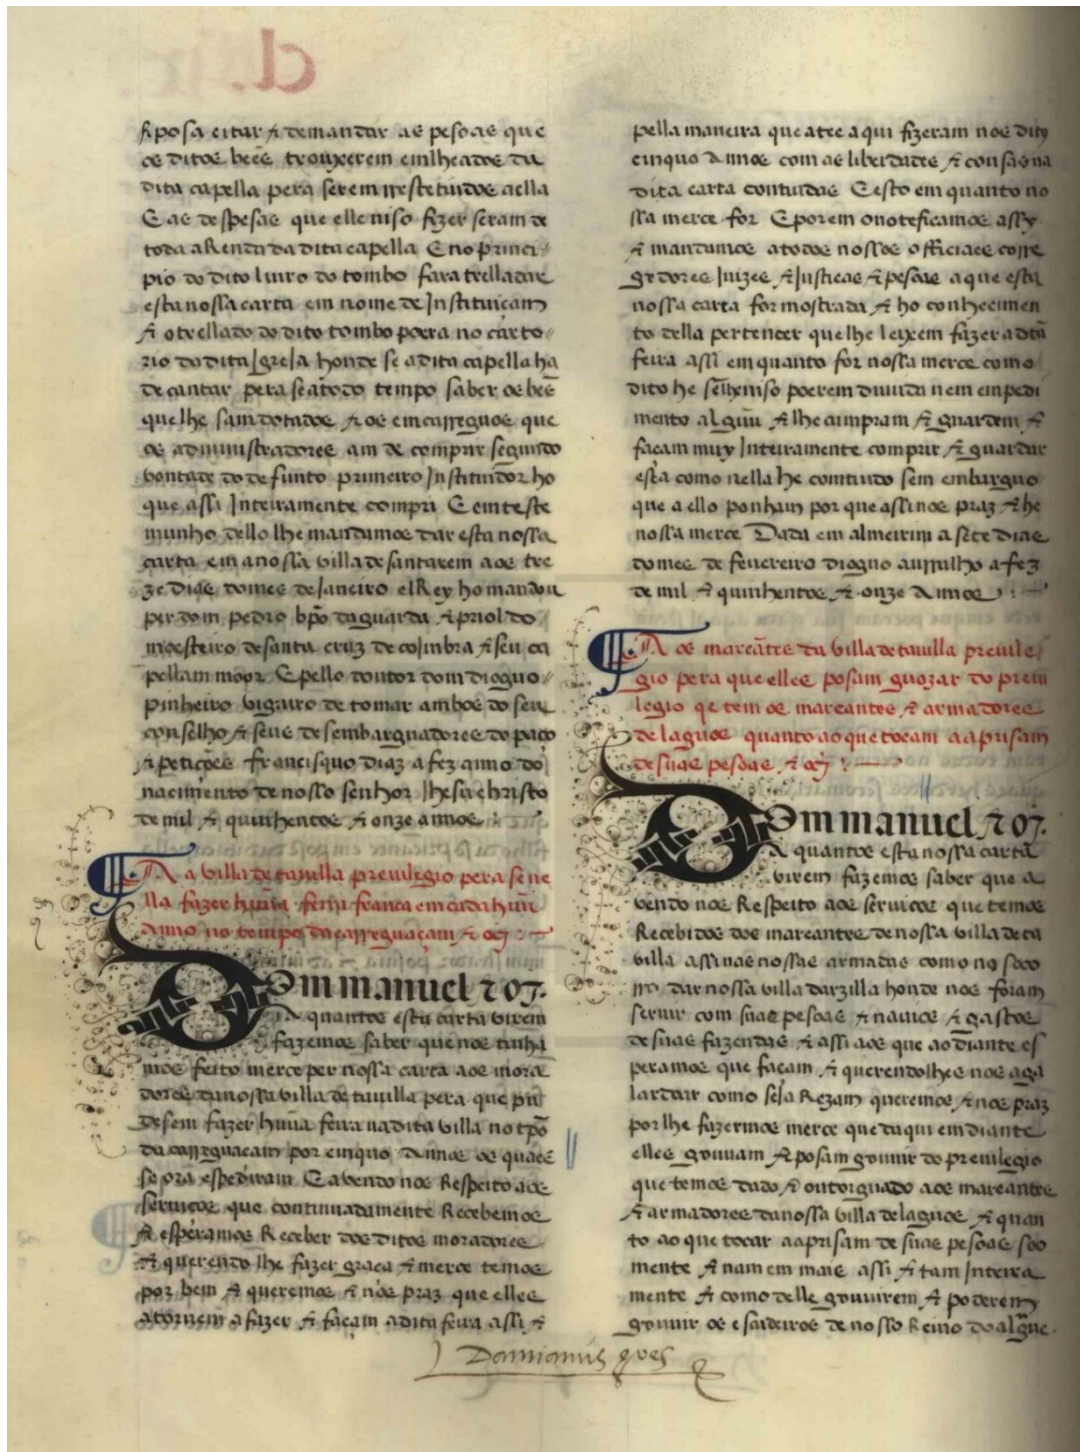 ⁊ posa citar ⁊ demandar as pesoas que
os ditos beẽs trouxerem emlheados da
dita capella pera serem rrestetuidos a ella
E as despesas que elle niso fizer seram de
toda a Renda da dita capella E no princi
pio do dito liuro do tombo fara trelladar
esta nossa carta em nome de Instituicam
⁊ o trellado do dito tombo poera no carto
rio da dita Igreja honde se a dita capella ha
de cantar pera se a todo tempo saber os beẽs
que lhe sam dotados ⁊ os emcarreguos que
os administradores am de comprir segundo
vontade do defunto primeiro Instituidor ho
que assi Inteiramente compri E em teste
munho dello lhe mandamos dar esta nossa
carta em a nossa villa de santarem aos tre
ze dias do mes de Janeiro elRey ho mandou
per dom pedro bpõ da guarda ⁊ priol do
moesteiro de santa cruz de coimbra ⁊ seu ca
pellam moor E pello doutor dom dioguo
pinheiro vigairo de tomar ambos do seu
conselho ⁊ seus desembarguadores do paço
⁊ petições francisquo diaz a fez anno do
nacimento de nosso senhor Jhesu christo
de mil ⁊ quinhentos ⁊ onze annos
A a villa de tauilla preuilegio pera se ne
lla fazer hũua feira franca em cada huũ
Anno no tempo da carreguaçam ⁊ cẽ
Dom manuel ⁊ cẽ.
A quantos esta carta virem
fazemos saber que nos tinha
mos feito merce per nossa carta aos mora
dores da nossa villa de tauilla pera que pu
desem fazer hũua feira na dita villa no tpõ
da carreguacam por cinquo Annos os quaes
se ora espediram E avendo nos Respeito aos
seruicos que continuadamente Recebemos
⁊ esperamos Receber dos ditos moradores
⁊ querendo lhe fazer graca ⁊ merce temos
por bem ⁊ queremos ⁊ nos praz que elles
atornem a fazer ⁊ facam a dita feira assi ⁊
pella maneira que atee aqui fizeram nos dito
cinquo Annos com as liberdades ⁊ cousas na
dita carta contiudas E esto em quanto no
ssa merce for E porem o noteficamos assy
⁊ mandamos a todos nossos officiaes corre
gedores Juizes ⁊ Justicas ⁊ pesoas a que esta
nossa carta for mostrada ⁊ ho conhecimen
to della pertencer que lhe leixem fazer a dita
feira assi em quanto for nossa merce como
dito he sem lhe niso poerem duuida nem empedi
mento alguũ ⁊ lhe cumpram ⁊ guardem ⁊
facam muy Inteiramente comprir ⁊ guardar
esta como nella he comtiudo sem embarguo
que a ello ponham por que assi nos praz ⁊ he
nossa merce Dada em almeirim a sete dias
do mes de feuereiro dioguo a fez
de mil ⁊ quinhentos ⁊ onze Annos
A os mareãtes da villa de tauilla preuile
gio pera que elles posam guozar do preui
legio que tem os mareantes ⁊ armadores
de laguos quanto ao que tocam aa prisam
de suas pesoas ⁊ cẽ
Dom manuel ⁊ cẽ.
A quantos esta nossa carta
virem fazemos saber que a
vendo nos Respeito aos seruicos que temos
Recebidos dos mareantes de nossa villa de ta
villa assi nas nossas armadas como no soco
rro dar nossa villa darzilla honde nos foram
seruir com suas pesoas ⁊ nauios ⁊ gastos
de suas fazendas ⁊ assi aos que ao diante es
peramos que facam ⁊ querendolhes nos aga
lardoar como seja Rezam queremos ⁊ nos praz
por lhe fazermos merce que daqui em diante
elles gouuam ⁊ posam gouuir do preuilegio
que temos dado ⁊ outorguado aos mareantes
⁊ armadores da nossa villa de laguos ⁊ quan
to ao que tocar aa prisam de suas pesoas soo
mente ⁊ nam em mais assi ⁊ tam Inteira
mente ⁊ como delle gouuirem ⁊ poderem
gouuir os escudeiros de nosso Reino do algũe
Damianus goes